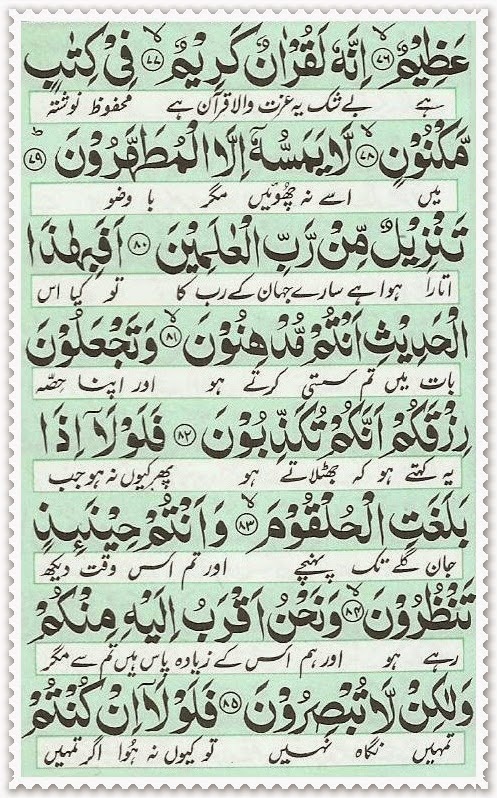 عَظِيمٌ ﴿۷۶﴾ اِنَّهٗ لَقُرْاٰنٌ كَرِيْمٌ ﴿۷۷﴾ فِيْ كِتٰبٍ
ہے بے شک یہ عزت والا قرآن ہے محفوظ نوشتہ
مَّكْنُوْنٍ ﴿۷۸﴾ لَّا يَمَسُّهٗٓ اِلَّا الْمُطَهَّرُوْنَ ﴿۷۹﴾
میں اسے نہ چھوئیں مگر با وضو
تَنْزِيْلٌ مِّنْ رَّبِّ الْعٰلَمِيْنَ ﴿۸۰﴾ اَفَبِهٰذَا
اتارا ہوا ہے سارے جہان کے رب کا تو کیا اس
الْحَدِيْثِ اَنْتُمْ مُّدْهِنُوْنَ ﴿۸۱﴾ وَتَجْعَلُوْنَ
بات میں تم سستی کرتے ہو اور اپنا حصّہ
رِزْقَكُمْ اَنَّكُمْ تُكَذِّبُوْنَ ﴿۸۲﴾ فَلَوْلَآ اِذَا
یہ کہتے ہو کہ جھٹلاتے ہو پھر کیوں نہ ہو جب
بَلَغَتِ الْحُلْقُوْمَ ﴿۸۳﴾ وَاَنْتُمْ حِيْنَئِذٍ
جان گلے تک پہنچے اور تم اس وقت دیکھ
تَنْظُرُوْنَ ﴿۸۴﴾ وَنَحْنُ اَقْرَبُ اِلَيْهِ مِنْكُمْ
رہے ہو اور ہم اس کے زیادہ پاس ہیں تم سے مگر
وَلٰكِنْ لَّا تُبْصِرُوْنَ ﴿۸۵﴾ فَلَوْلَآ اِنْ كُنْتُمْ
تمہیں نگاہ نہیں تو کیوں نہ ہُوا اگر تمہیں